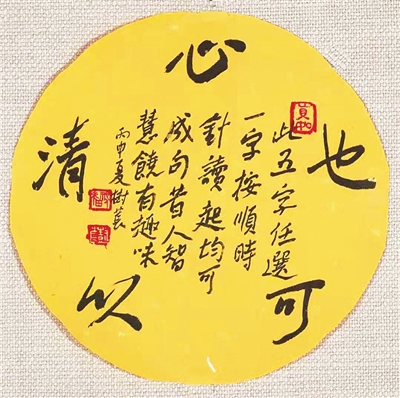 可
以
清
心
也
此五字任選
一字按順時
針讀起均可
成句昔人智
慧饒有趣味
丙申夏樹